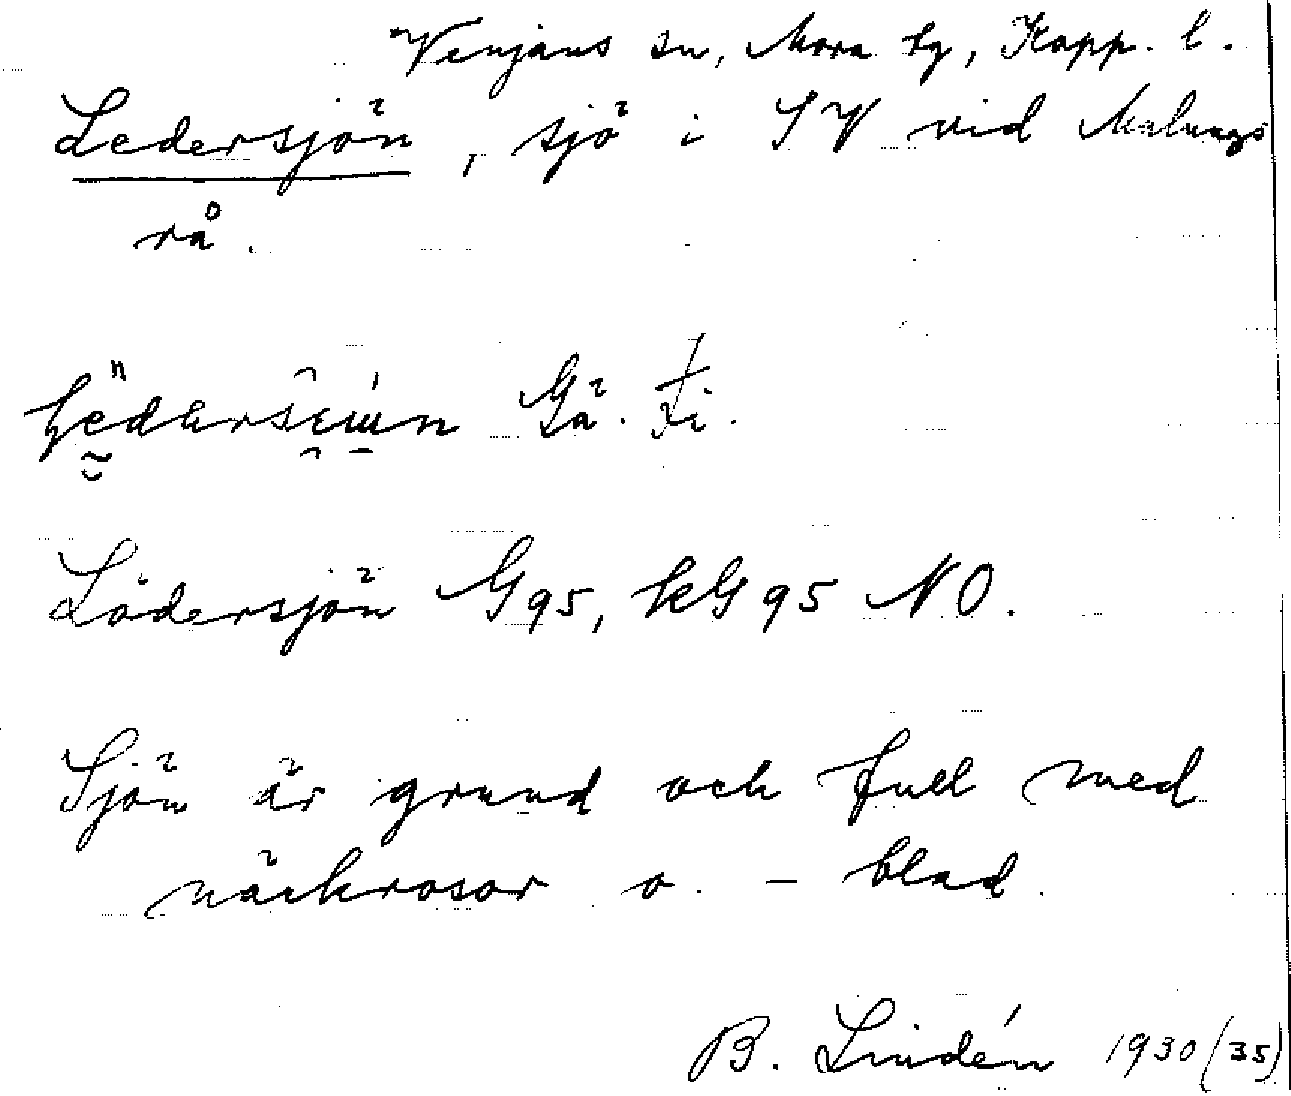 Venjans sn, Mora tg, Kopp. l.
Ledersjön, sjö i SV vid Malungs
rå.
Gä.
Lödersjön G95, kG95 NO.
Sjön är grund och full med
näckrosor o. - blad.
B. Lindén 1930 (35)